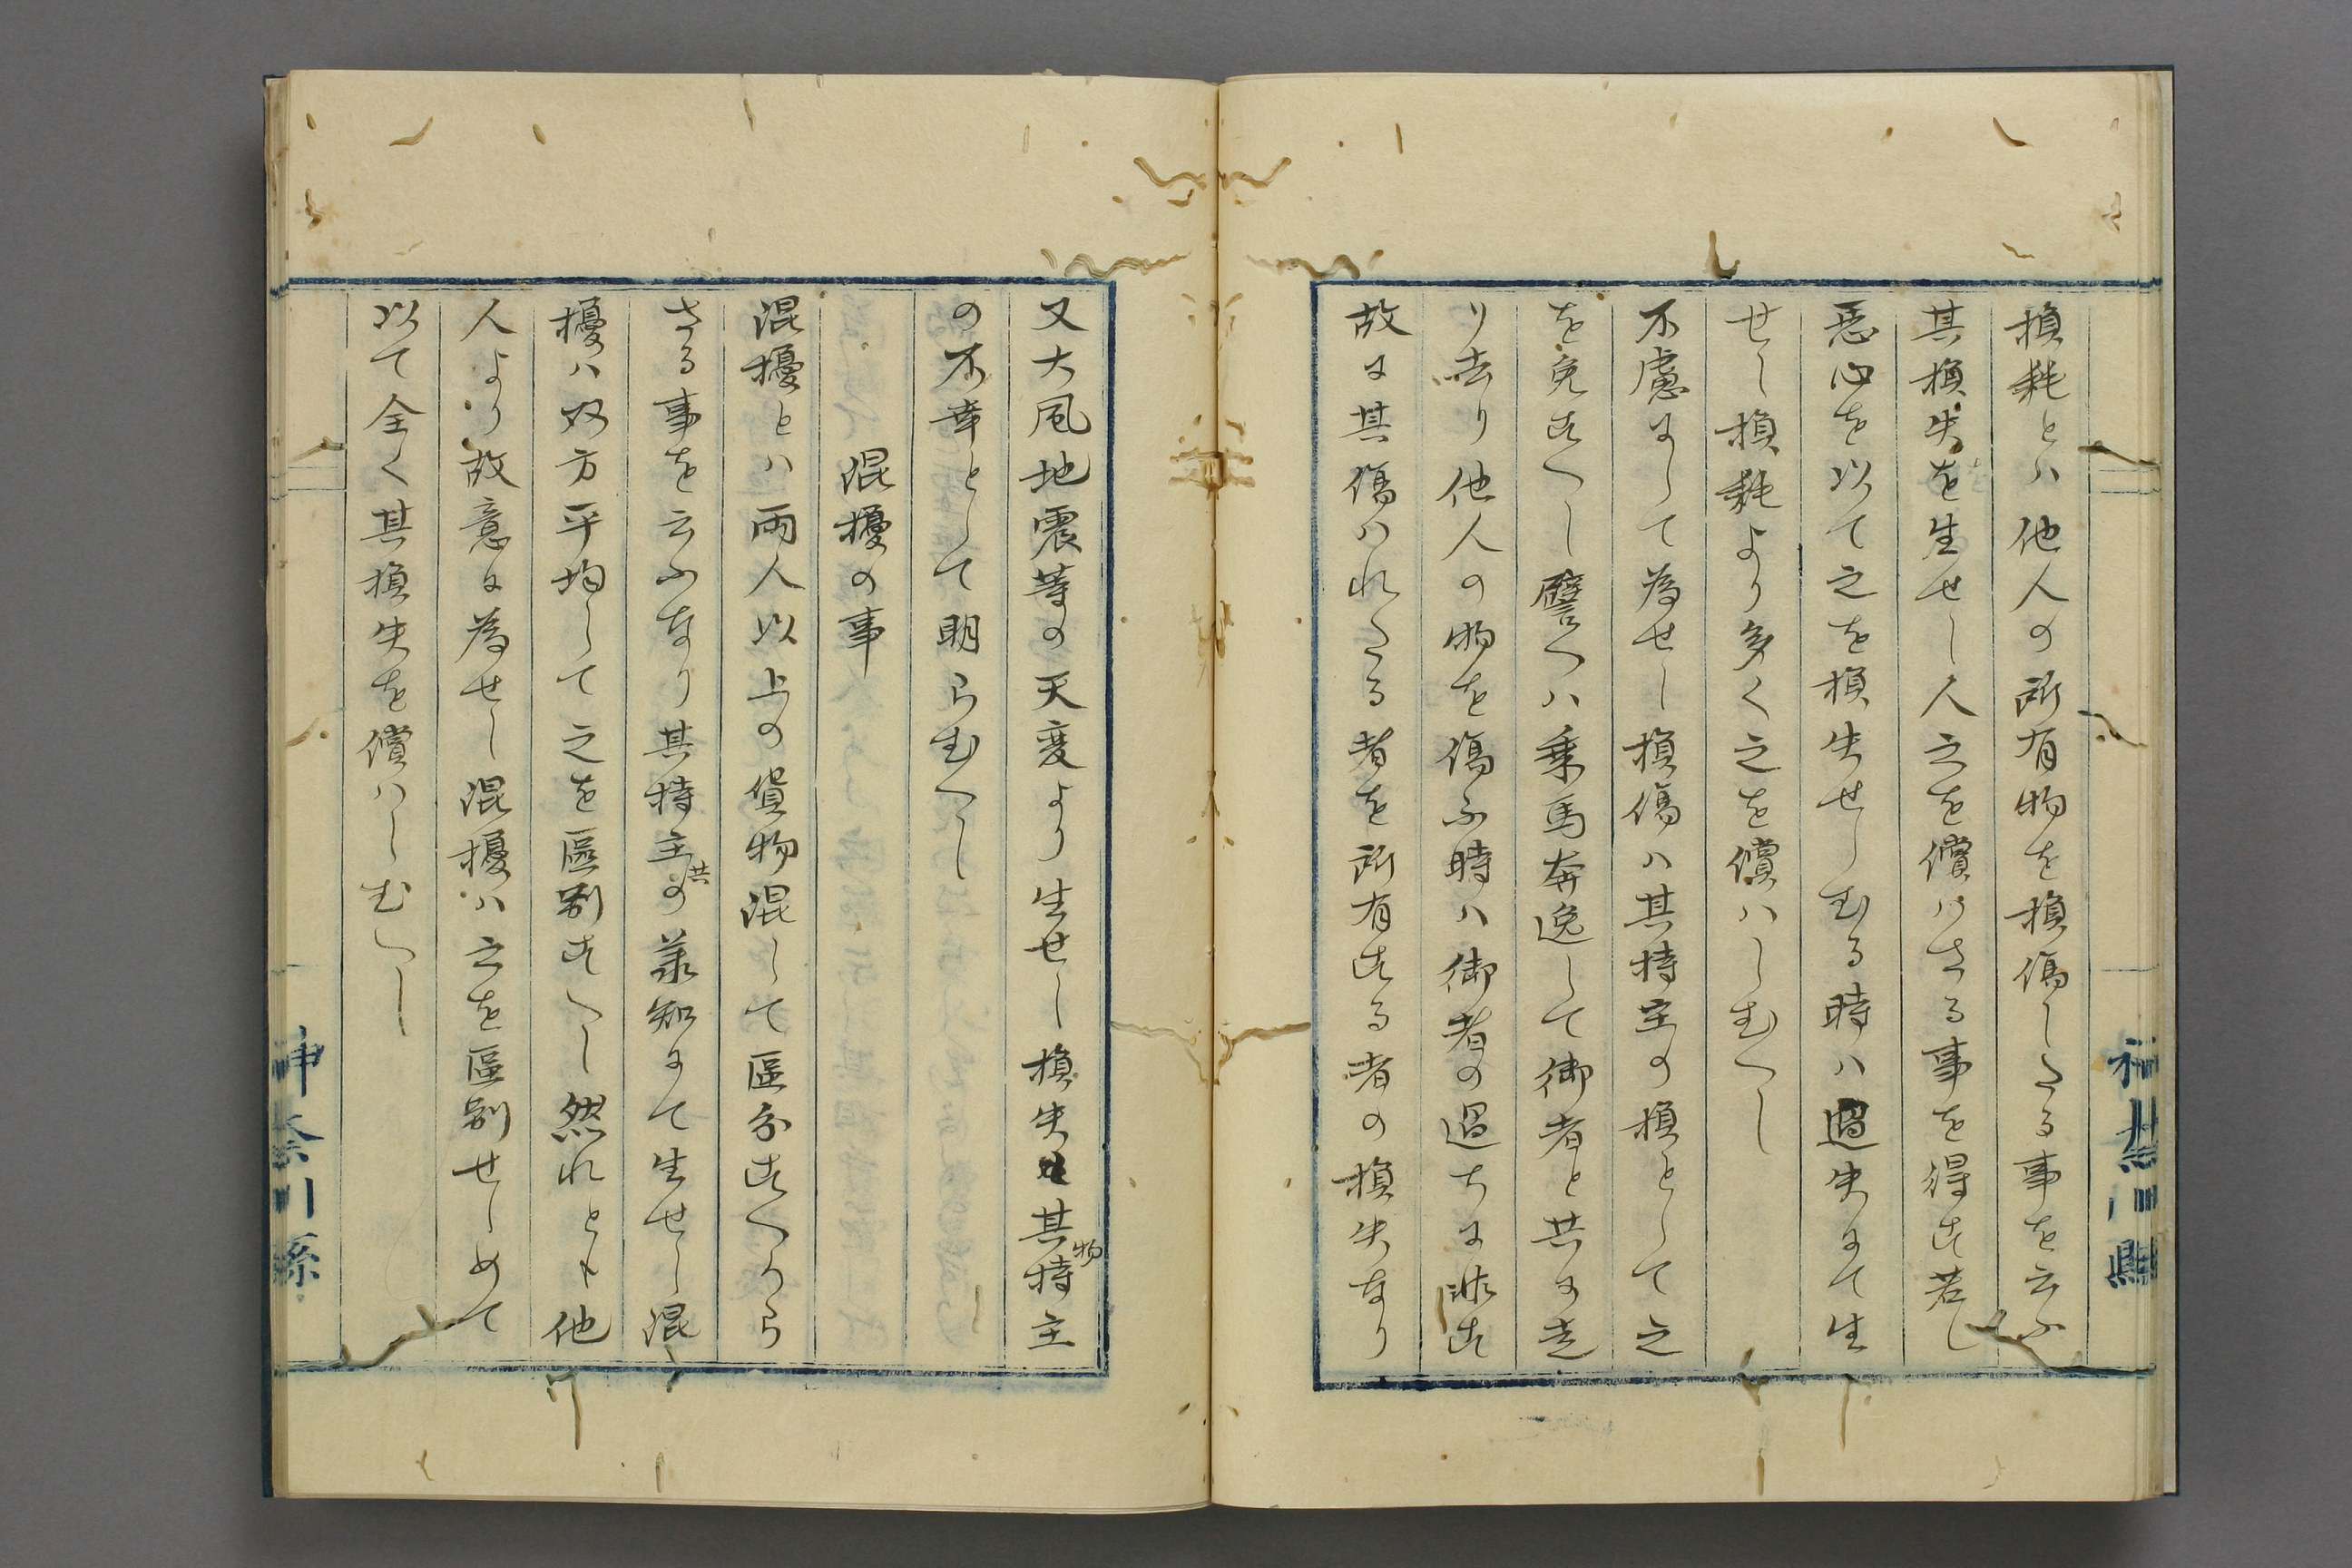 損耗とハ他人の所有物を損傷したる事を云ふ
其損失を生せし人之を償ハさる事を得す若し
悪心を以て之を損失せしむる時ハ過失にて生
せし損耗より多く之を償ハしむへし
不慮にして為せし損傷ハ其持主の損として之
を免すへし譬へハ乗馬奔逸して御者と共に走
り去り他人の物を傷ふ時ハ御者の過ちに非す
故に其傷ハれたる者を所有する者の損失なり
神奈川縣
又大風地震等の天変より生せし損失ハ其物持主
の不幸として明らむへし
混擾の事
混擾とハ両人以上の貨物混して區分すへから
さる事を云ふなり其持主共の承知にて生せし混
擾ハ双方平均して之を區別すへし然れとも他
人より故意に為せし混擾ハ之を區別せしめて
以て全く其損失を償ハしむへし
神奈川縣